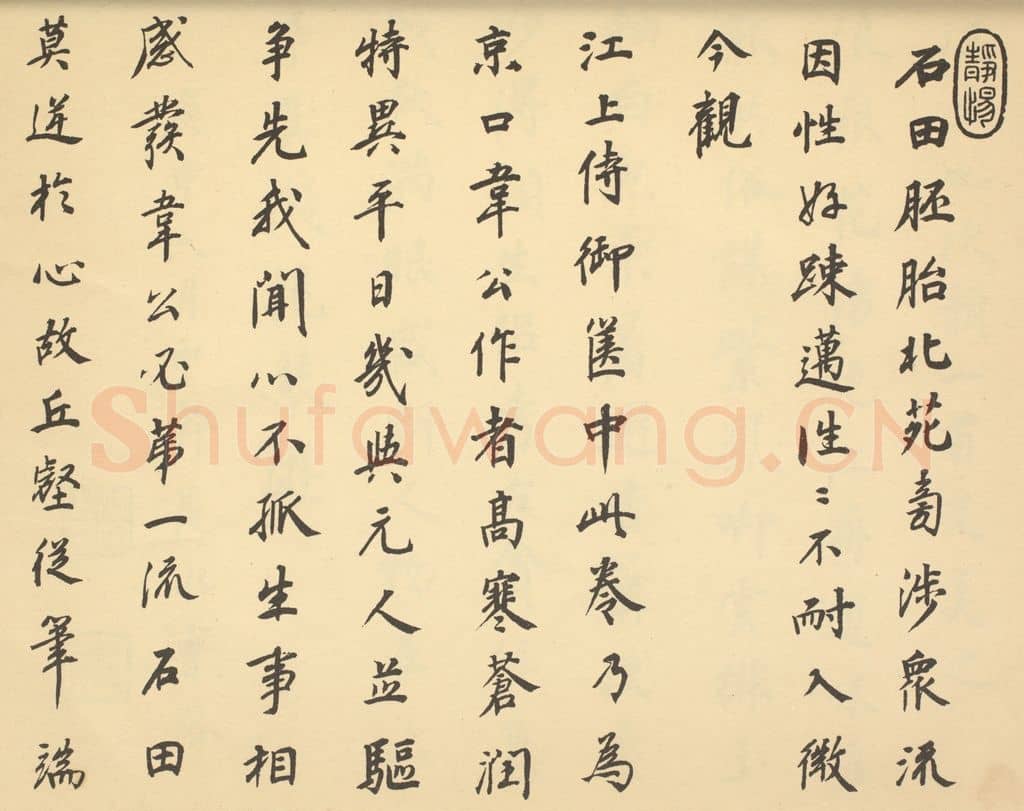 石田胚胎北苑旁涉衆流
因性好踈邁往〻不耐入微
今觀
江上侍御篋中此卷乃為
京口韋公作者高寒蒼潤
特異平日幾與元人並驅
爭先我聞心不孤生事相
感發韋公必第一流石田
莫逆於心故丘壑從筆端
Shufawang.CN